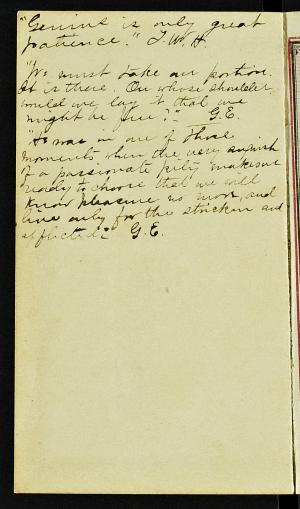 "Genius is only great
patience." T.W.H.
"We must take our portion.
It is there. On whose shoulder
would we lay it that we
might be free?" G.E.
"He was in one of those
moments when the very anguish
of a passionate pity makes us
ready to choose that we will
know pleasure no more, and
live only for the stricken and
afflicted." G.E.